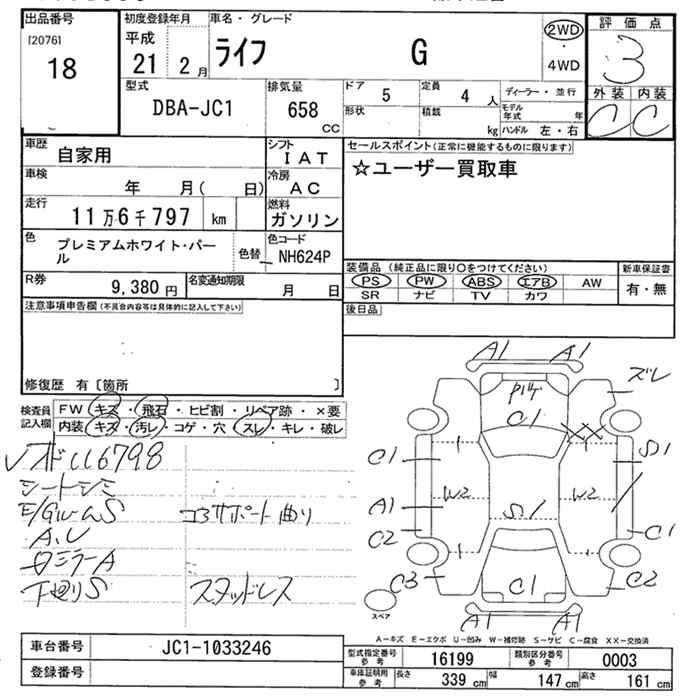 出品番号
[2076]
18
初度登録年月
平成
21 2 月
車名・グレード
ライフ G
2WD
・
4WD
評価点
3
外装 内装
C C
型式
DBA-JC1
排気量
658
CC
ドア 5
形状
定員 4 人
積載 kg
ディーラー・並行
モデル年式 年
ハンドル 左・右
車歴 自家用
シフト IAT
車検 年 月( 日)
冷房 AC
走行 11万6千797 km
燃料 ガソリン
色 プレミアムホワイト・パール
色替
色コード NH624P
R券 9,380円
名変通知期限 月 日
セールスポイント(正常に機能するものに限ります)
☆ユーザー買取車
装備品(純正品に限り○をつけてください)
PS PW ABS エアB AW
SR ナビ TV カワ
新車保証書
有・無
後日品
注意事項申告欄(不具合内容等は具体的に記入して下さい)
修復歴 有〔箇所 〕
検査員記入欄
FW キズ・飛石・ヒビ割・リペア跡・×要
内装 キズ・汚レ・コゲ・穴・スレ・キレ・破レ
シートシミ
コアサポート曲り
ミラーA
下廻りS
スタッドレス
A1 A1
ズレ
C1
C1 S1
W2 W2
A1 S1
C2 C1
C3 C1 C2
スペア
A1 A1
A-キズ E-エクボ U-凹み W-補修跡 S-サビ C-腐食 XX-交換済
車台番号 JC1-1033246
登録番号
型式指定番号参考 16199
類別区分番号参考 0003
車庫証明用参考 長さ 339 cm 幅 147 cm 高さ 161 cm